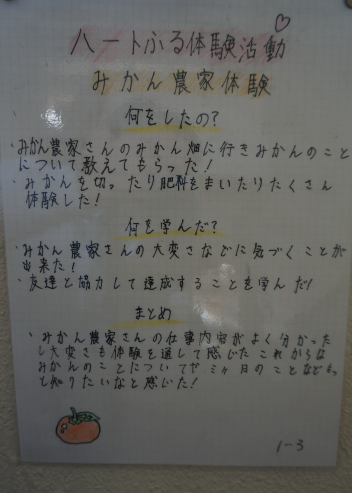 ハートふる体験活動
みかん農家体験
何をしたの?
・みかん農家さんのみかん畑に行きみかんのこと
について教えてもらった!
・みかんを切ったり肥料をまいたりたくさん
体験した!
何を学んだ?
・みかん農家さんの大変さなどに気づくことが
出来た!
・友達と協力して達成することを学んだ!
まとめ
・みかん農家さんの仕事内容がよく分かった
し大変さも体験を通して感じたこれからは
みかんのことについてや三ヶ日のことなどもっ
と知りたいなと感じた!
1-3